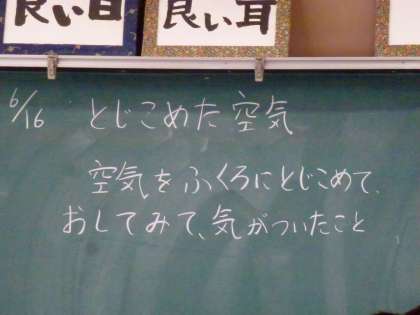 良い目
良い耳
6/16 とじこめた空気
空気をふくろにとじこめて、
おしてみて、気がついたこと